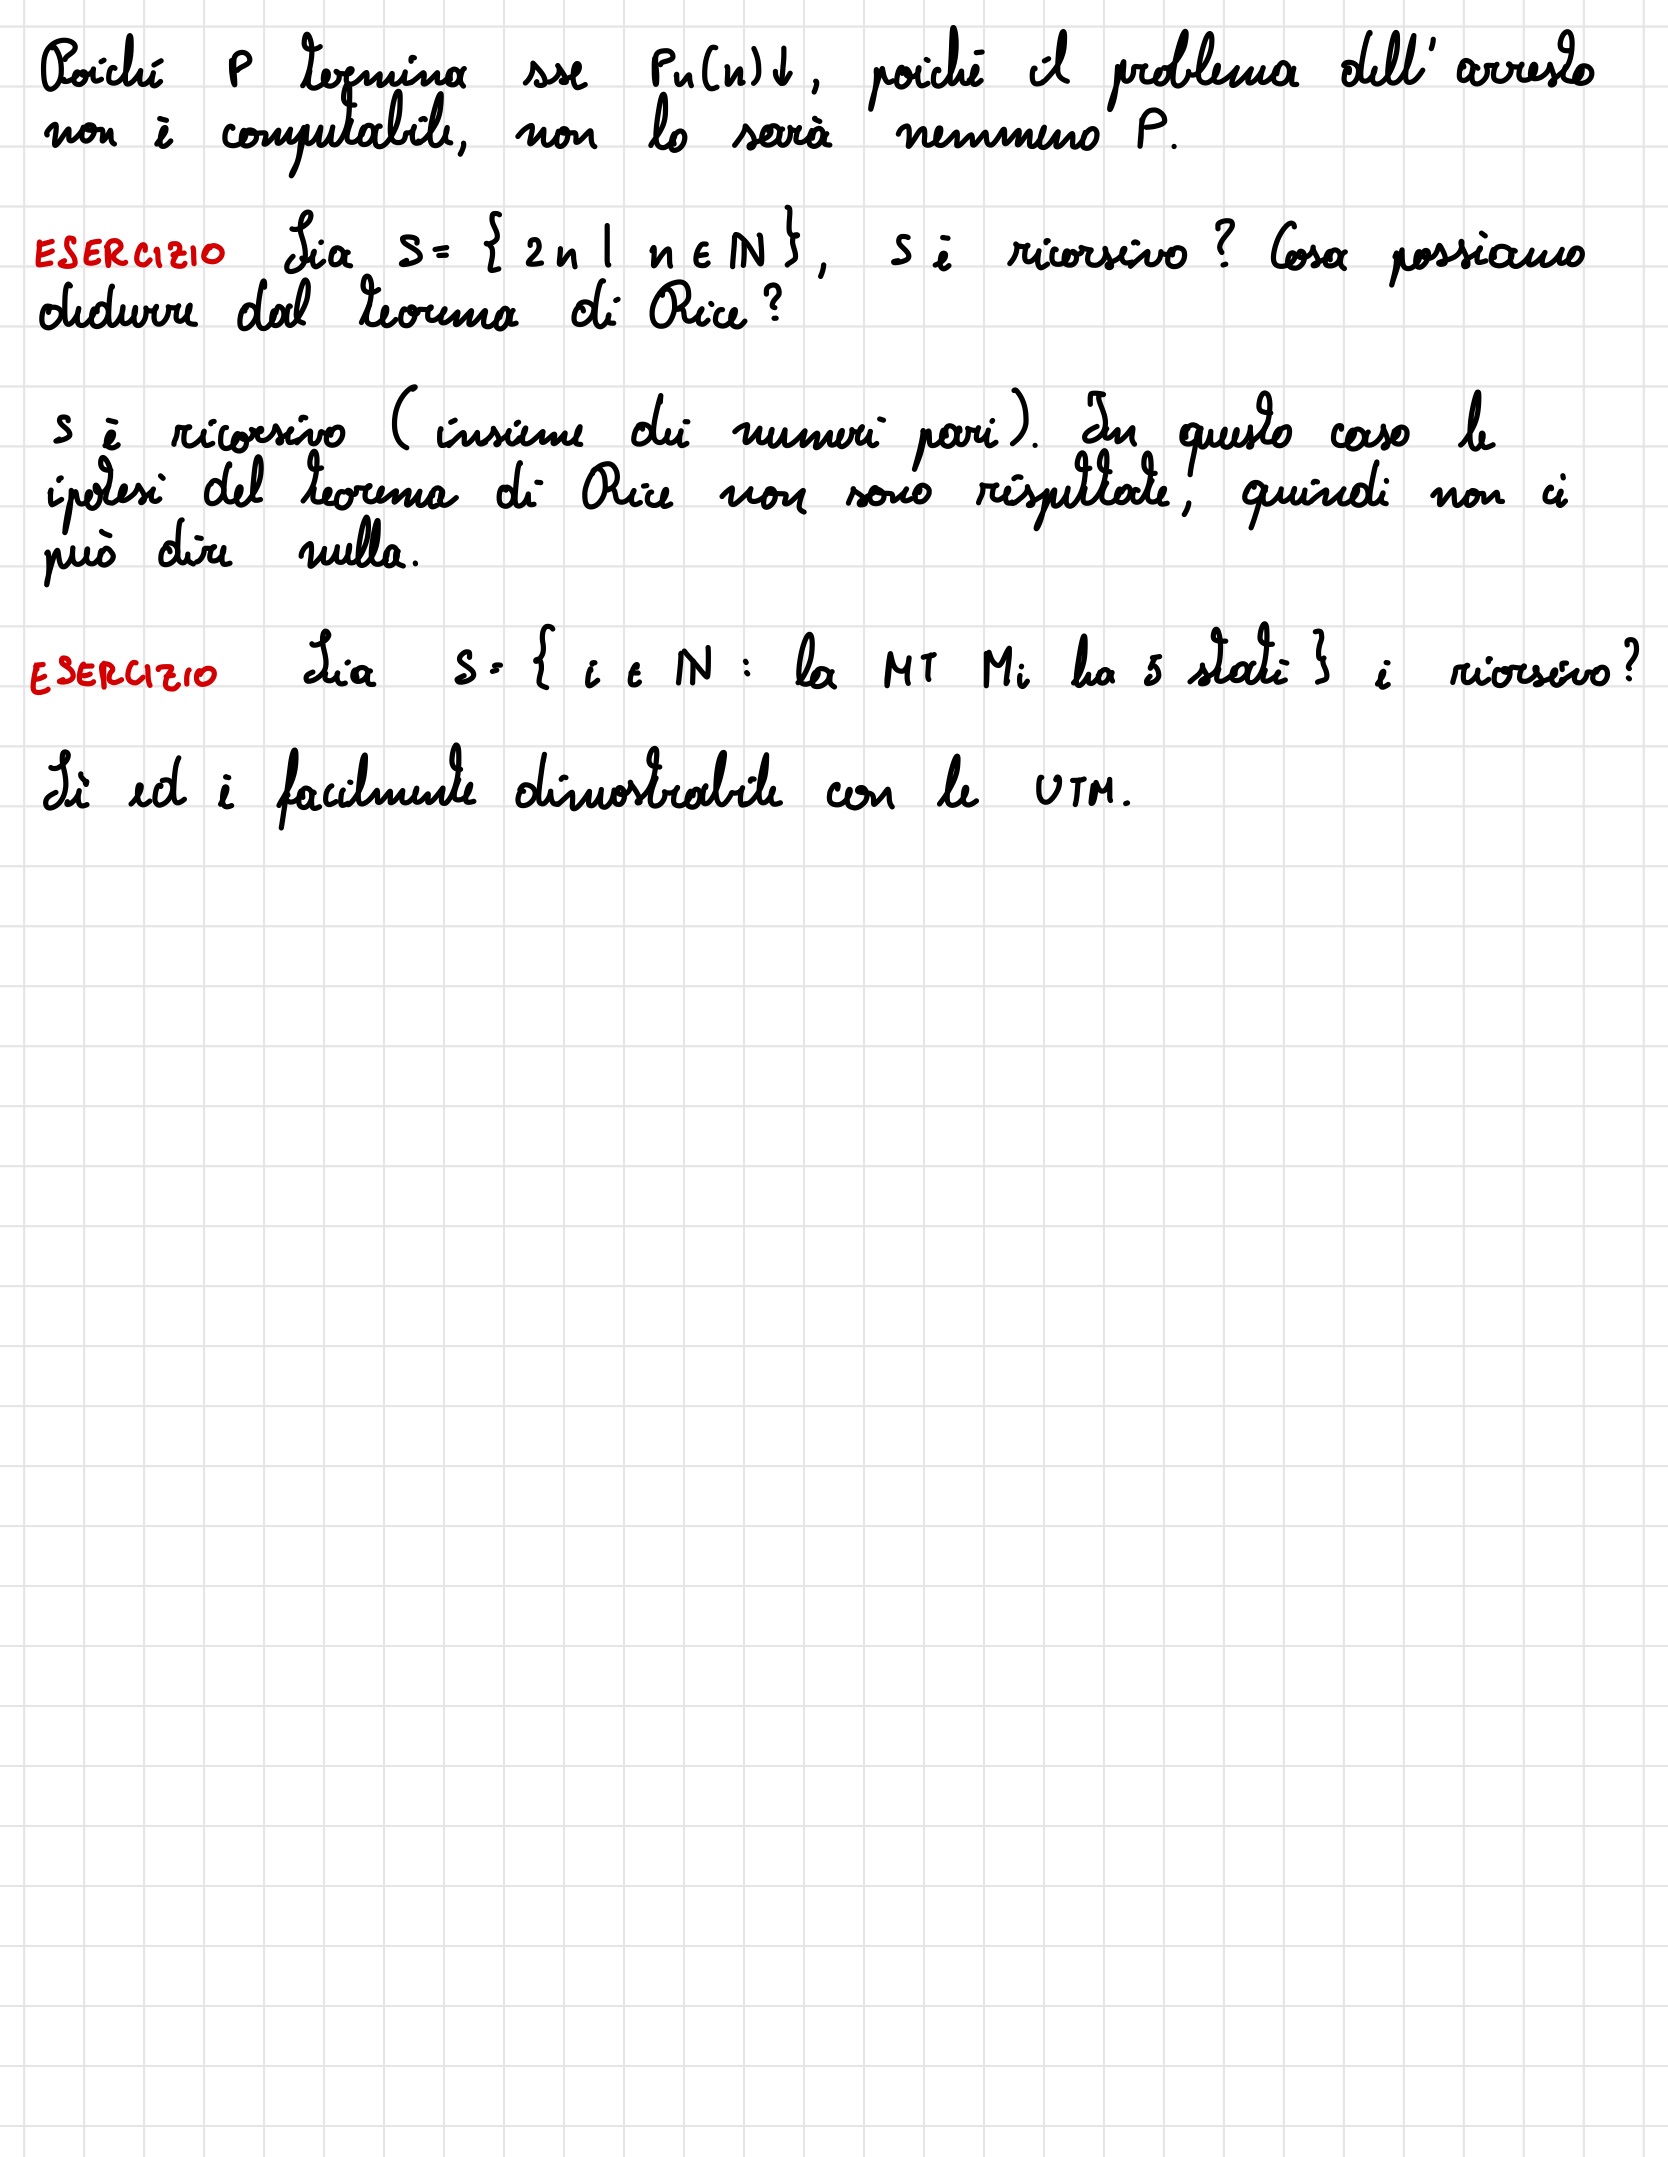 Poiché P termina sse Pn(n)↓, poiché il problema dell'arresto
non è computabile, non lo sarà nemmeno P.
ESERCIZIO Sia S = { 2n | n ∈ ℕ }, S è ricorsivo? Cosa possiamo
dedurre dal teorema di Rice?
S è ricorsivo (insieme dei numeri pari). In questo caso le
ipotesi del teorema di Rice non sono rispettate, quindi non ci
può dire nulla.
ESERCIZIO Sia S = { i ∈ ℕ : la MT Mi ha 5 stati } è ricorsivo?
Sì ed è facilmente dimostrabile con le UTM.